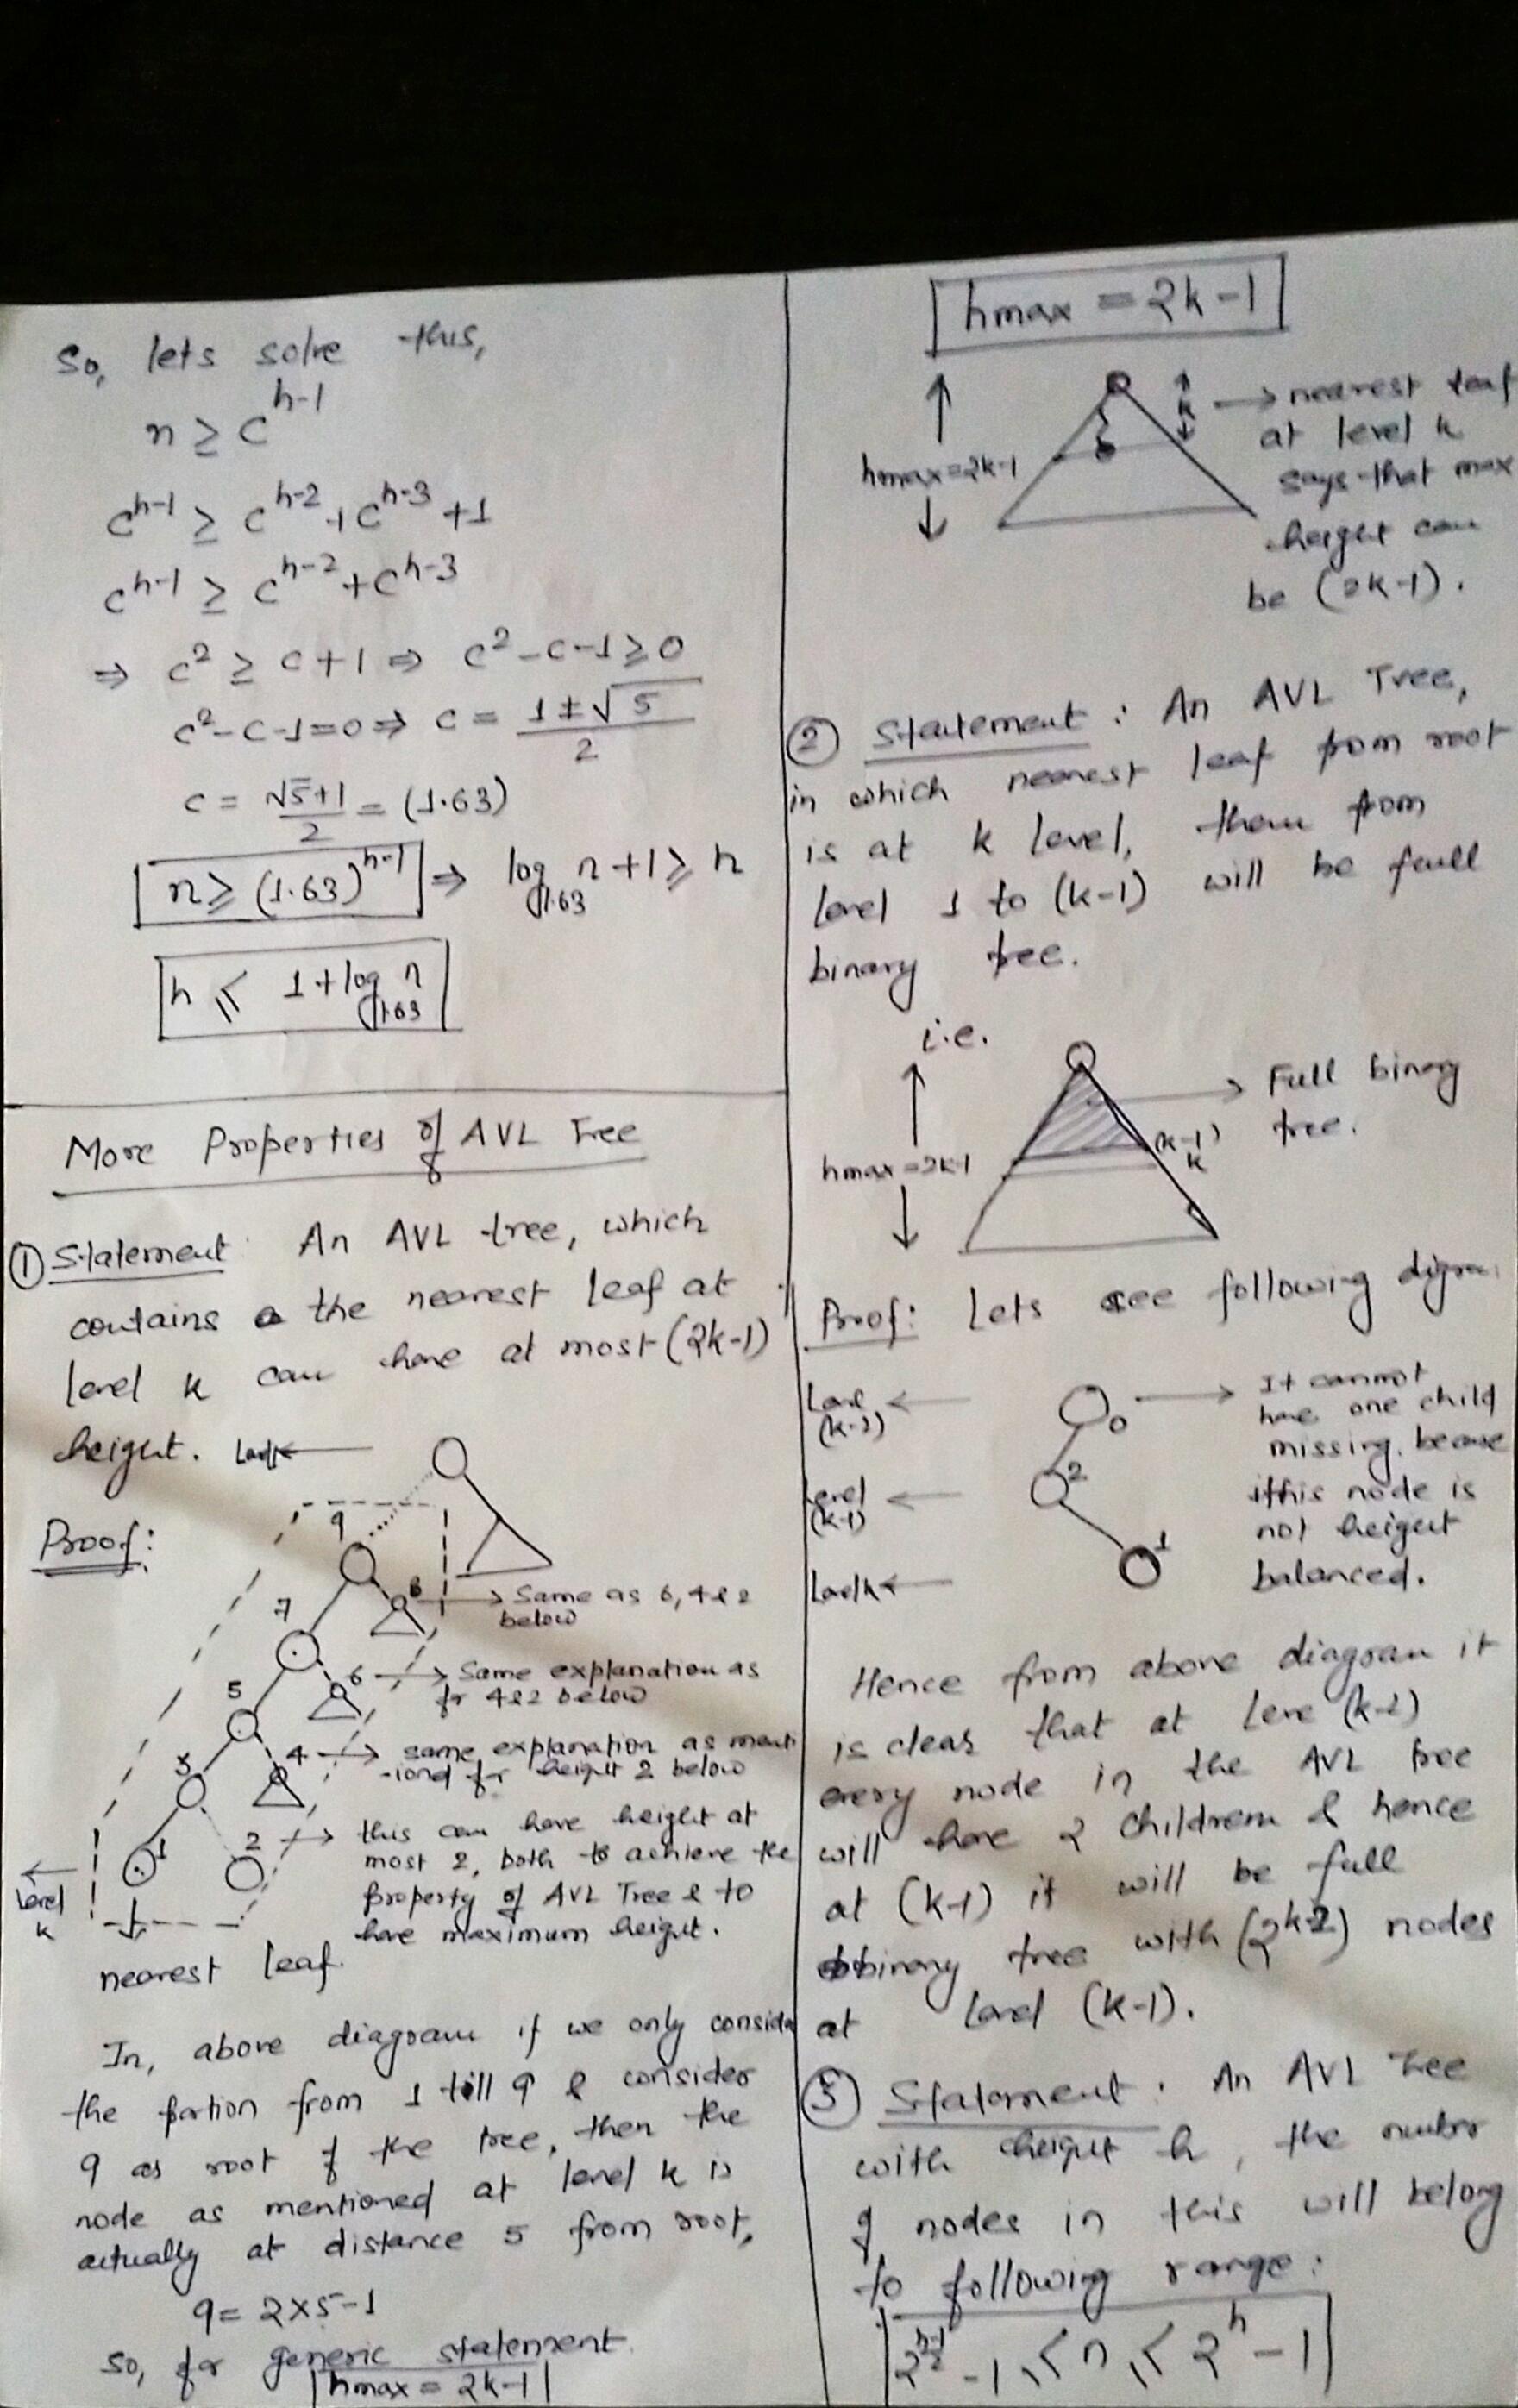 So, lets solve this,
n ≥ c^(h-1)
c^(h-1) ≥ c^(h-2) + c^(h-3) + 1
c^(h-1) ≥ c^(h-2) + c^(h-3)
⇒ c² ≥ c + 1 ⇒ c² - c - 1 ≥ 0
c² - c - 1 = 0 ⇒ c = (1 ± √5)/2
c = (√5 + 1)/2 = (1.63)
n ≥ (1.63)^(h-1) ⇒ log_1.63 n + 1 ≥ h
h ≤ 1 + log_1.63 n
More Properties of AVL Tree
① Statement An AVL tree, which
contains the nearest leaf at
level k can have at most (2k-1)
height.
Proof:
9
8 → Same as 6, 4 & 2
below
7
6 → Same explanation as
fr 4 & 2 below
5
4 → same explanation as menti
-iond fr height 2 below
3
2 → this can have height at
most 2, both to achieve the
property of AVL Tree & to
have maximum height.
1
Level
k
nearest leaf.
In, above diagram if we only consider
the portion from 1 till 9 & consider
9 as root of the tree, then the
node as mentioned at level k is
actually at distance 5 from root,
9 = 2×5-1
So, for generic statement
hmax = 2k-1
hmax = 2k-1
k → nearest leaf
at level k
says that max
height can
be (2k-1).
hmax = 2k-1
② Statement : An AVL Tree,
in which nearest leaf from root
is at k level, then from
level 1 to (k-1) will be full
binary tree.
i.e.
→ Full binary
tree.
(k-1)
k
hmax = 2k-1
Proof: Lets see following
Level
(k-2)
0 → It cannot
have one child
missing, because
this node is
not height
balanced.
Level
(k-1)
2
Level k
1
Hence from above diagram it
is clear that at Leve (k-2)
every node in the AVL tree
will have 2 children & hence
at (k-1) it will be full
binary tree with (2^(k-2)) nodes
at level (k-1).
③ Statement : An AVL Tree
with height h, the number
of nodes in this will belong
to following range:
2^((h-1)/2) - 1 ≤ n ≤ 2^h - 1